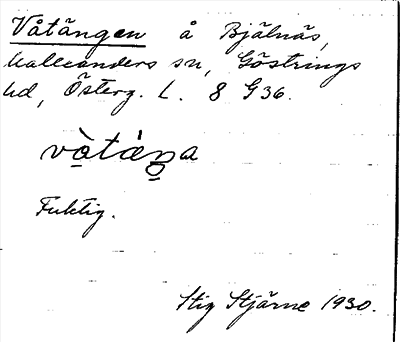 Våtängen å Bjälnäs,
Malexanders sn, Göstrings
hd, Österg. L. 8 G 36.
Fuktig.
Stig Stjärne 1930.